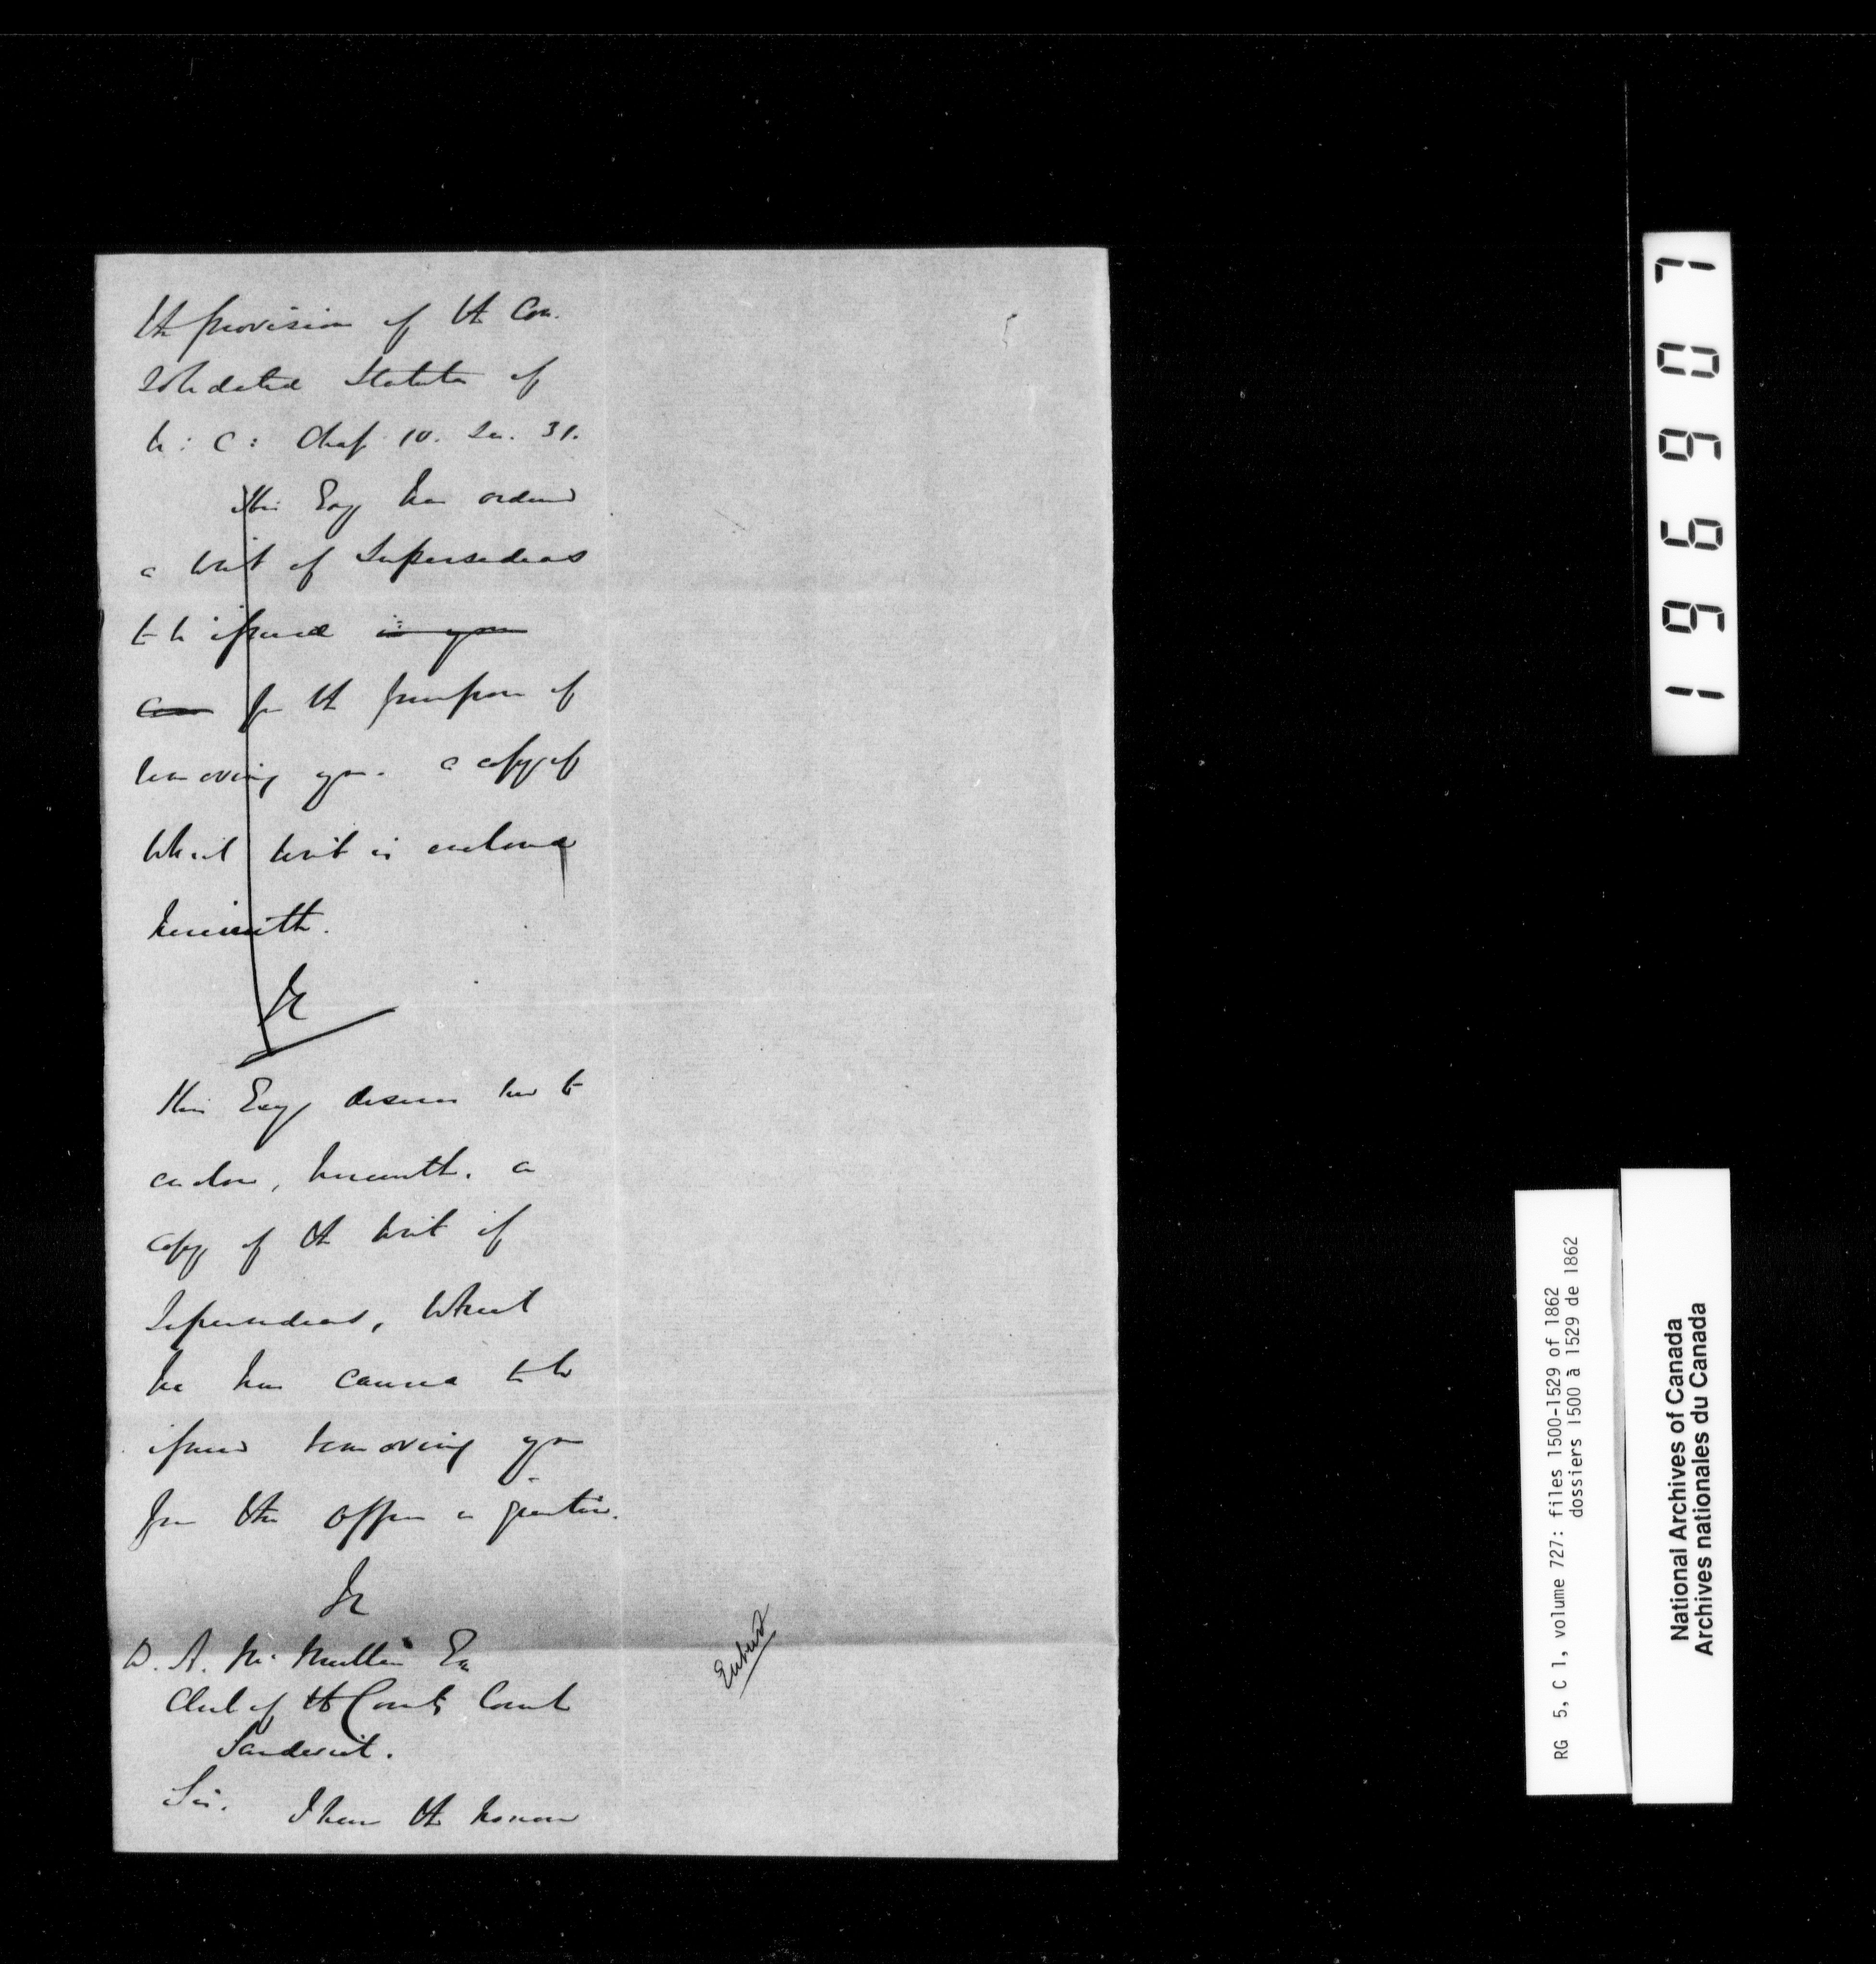 the provision of the Con-
solidated Statutes of
U: C: Chap 10. Sec. 31.
His Excy has ordered
a writ of Supersedeas
to be issued in your
case for the purpose of
removing you. a copy of
which writ is enclosed
herewith.
&c
His Excy desires me to
enclose, herewith, a
copy of the writ of
Supersedeas, which
he has caused to be
issued removing you
from the office in question.
&c
D. A. McMullin Esq
Clerk of the County Court
Sandwich.
Sir. I have the honour
Entered
196907
RG 5, C 1, volume 727: files 1500-1529 of 1862
dossiers 1500 à 1529 de 1862
National Archives of Canada
Archives nationales du Canada